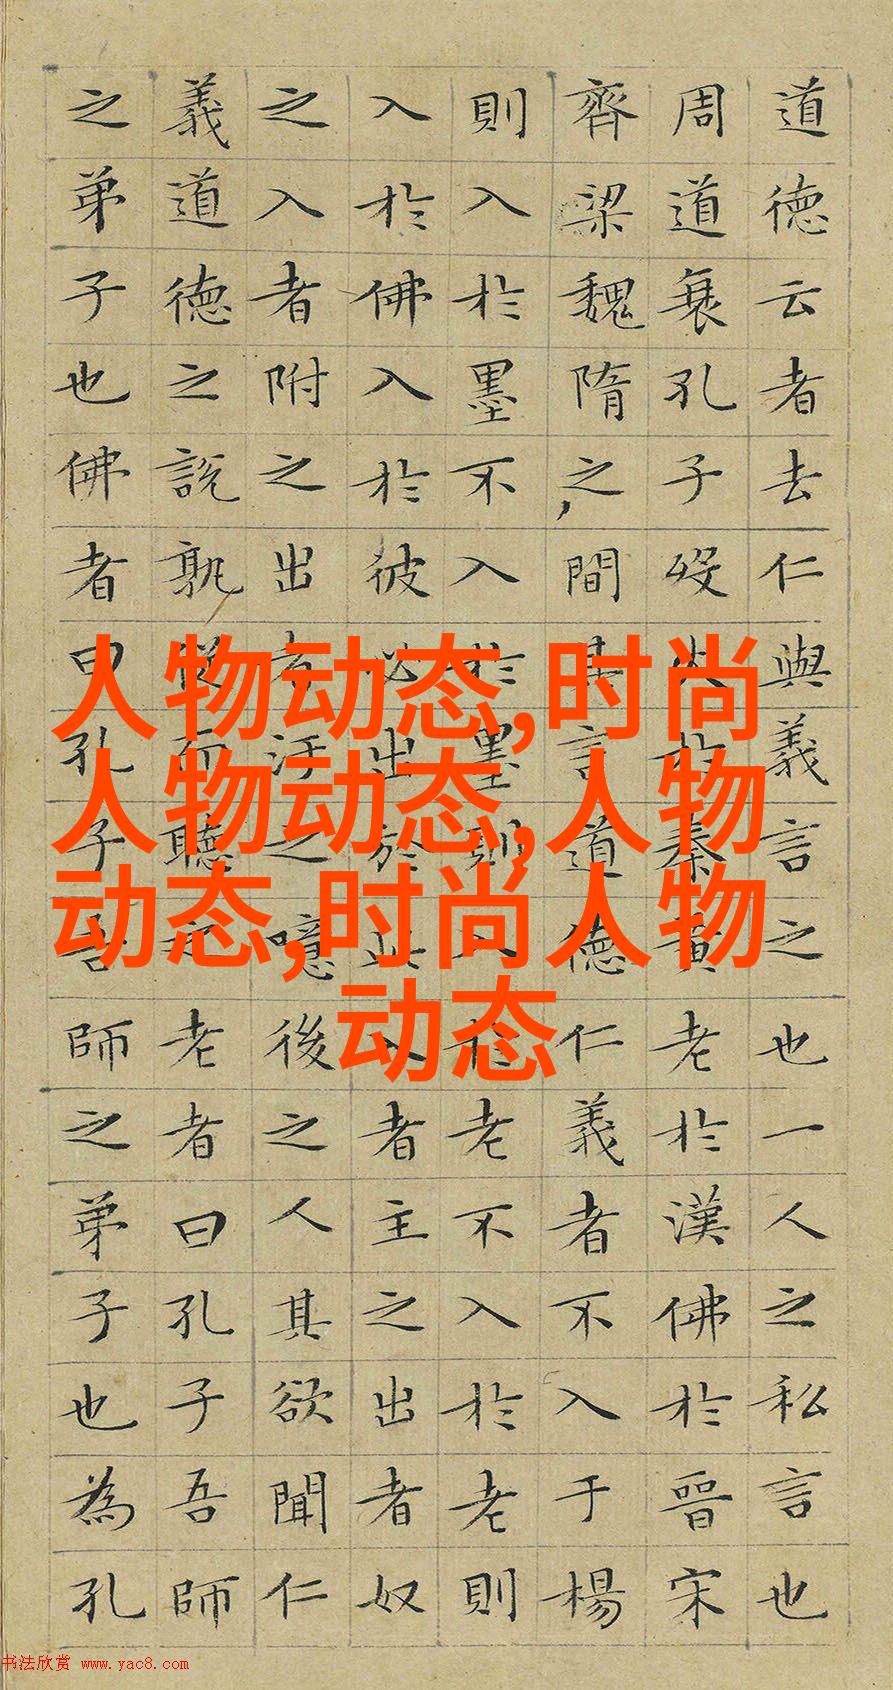 道德云者去仁與義言之也一人之私言也
周道衰孔子歿火於秦黃老於漢佛於晉宋
齊梁魏隋之間其言道德仁義者不入于楊
則入於墨不入於墨則入於老不入於老則
入於佛入於彼必出於此入者主之出者奴
之入者附之出者汙之噫後之人其欲聞仁
義道德之說孰從而聽之老者曰孔子吾師
之弟子也佛者曰孔子吾師之弟子也為孔
人物动态,时尚
人物动态,人物
动态,时尚人物
动态
书法欣赏 www.yac8.com